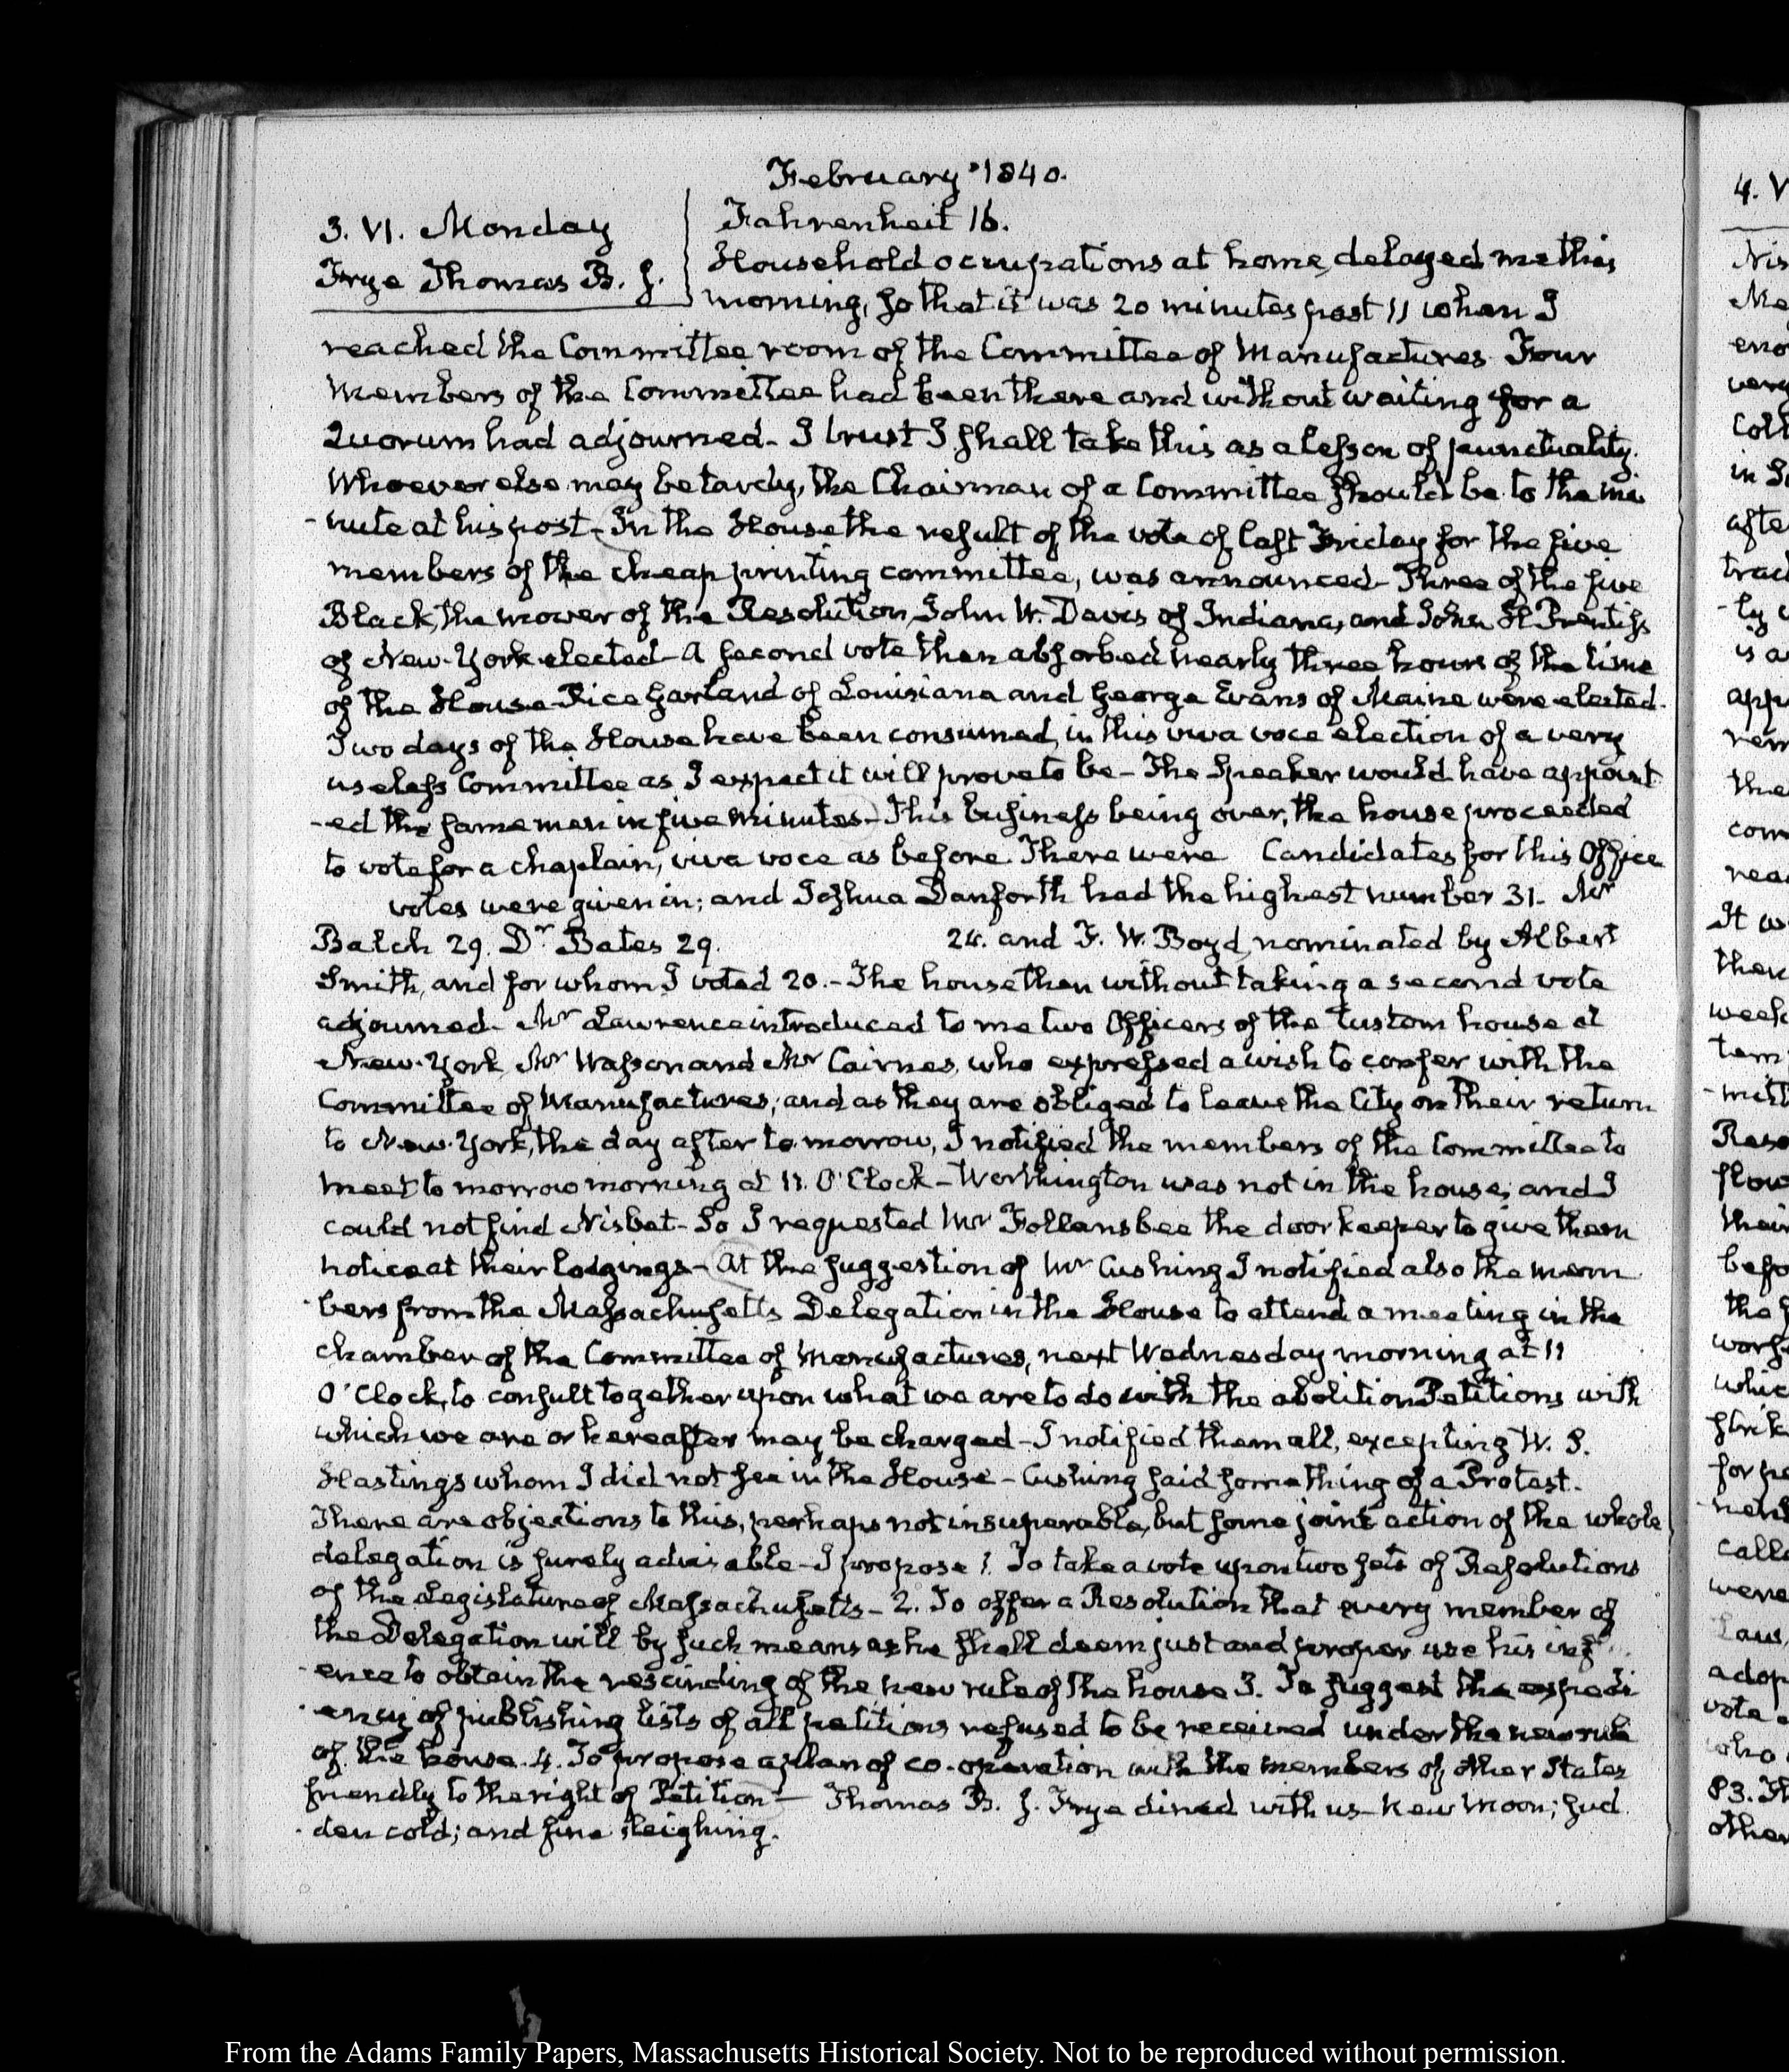 February 1840.
3. VI. Monday
Frye Thomas B. J.
Fahrenheit 16.
Household occupations at home, delayed me this
morning, so that it was 20 minutes past 11 when I
reached the Committee room of the Committee of Manufactures Four
Members of the Committee had been there and without waiting for a
Quorum had adjourned- I trust I shall take this as a lesson of punctuality.
Whoever else may be tardy, the Chairman of a Committee should be to the mi
-nute at his post- In the House the result of the vote of last Friday for the five
members of the cheap printing committee, was announced- Three of the five
Black, the mover of the Resolution, John W. Davis of Indiana, and John H Prentiss
of New-York elected- A second vote then absorbed nearly three hours of the time
of the House Rice Garland of Louisiana and George Evans of Maine were elected.
Two days of the House have been consumed in this viva voce election of a very
useless Committee as I expect it will prove to be- The Speaker would have appoint
-ed the same men in five minutes- This business being over, the house proceeded
to vote for a chaplain, viva voce as before There were Candidates for this Office
votes were given in; and Joshua Danforth had the highest number 31. Mr
Balch 29. Dr Bates 29. 24. and F. W. Boyd, nominated by Albert
Smith, and for whom I voted 20.- The house then without taking a second vote
adjourned- Mr Lawrence introduced to me two Officers of the Custom house at
New-York, Mr Wasson and Mr Cairnes, who expressed a wish to confer with the
Committee of Manufactures; and as they are obliged to leave the City on their return
to New-York, the day after to-morrow, I notified the members of the Committee to
meet to morrow morning at 11. O'Clock- Worthington was not in the house, and I
could not find Nisbet- So I requested Mr Follansbee the door keeper to give them
notice at their lodgings- At the suggestion of Mr Cushing I notified also the mem
-bers from the Massachusetts Delegation in the House to attend a meeting in the
chamber of the Committee of Manufactures, next Wednesday morning at 11
O'Clock, to consult together upon what we are to do with the abolition Petitions with
which we are or hereafter may be charged- I notified them all, excepting W. S.
Hastings whom I did not see in the House- Cushing said something of a Protest.
There are objections to this, perhaps not insuperable, but some joint action of the whole
delegation is surely advisable- I propose 1. To take a vote upon two sets of Resolutions
of the Legislature of Massachusetts- 2. To offer a Resolution that every member of
the Delegation will by such means as he shall deem just and proper use his infl
-ence to obtain the rescinding of the new rule of the house 3. To suggest the expedi
-ency of publishing lists of all petitions refused to be received under the new rule
of the house. 4. To propose a plan of co-operation with the members of other States
friendly to the right of Petition- Thomas B. J. Frye dined with us- New Moon; sud
-den cold; and fine sleighing.
From the Adams Family Papers, Massachusetts Historical Society. Not to be reproduced without permission.